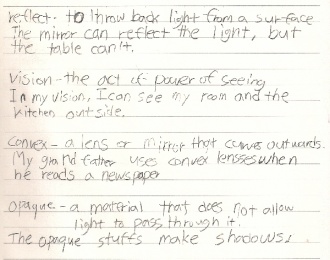 reflect - to throw back light from a surface
The mirror can reflect the light, but
the table can't.
Vision - the act of power of seeing
In my vision, I can see my room and the
kitchen outside.
convex - a lens or mirror that curves outwards.
My grandfather uses convex lensses when
he reads a newspaper
opaque - a material that does not allow
light to pass through it.
The opaque stuffs make shadows.